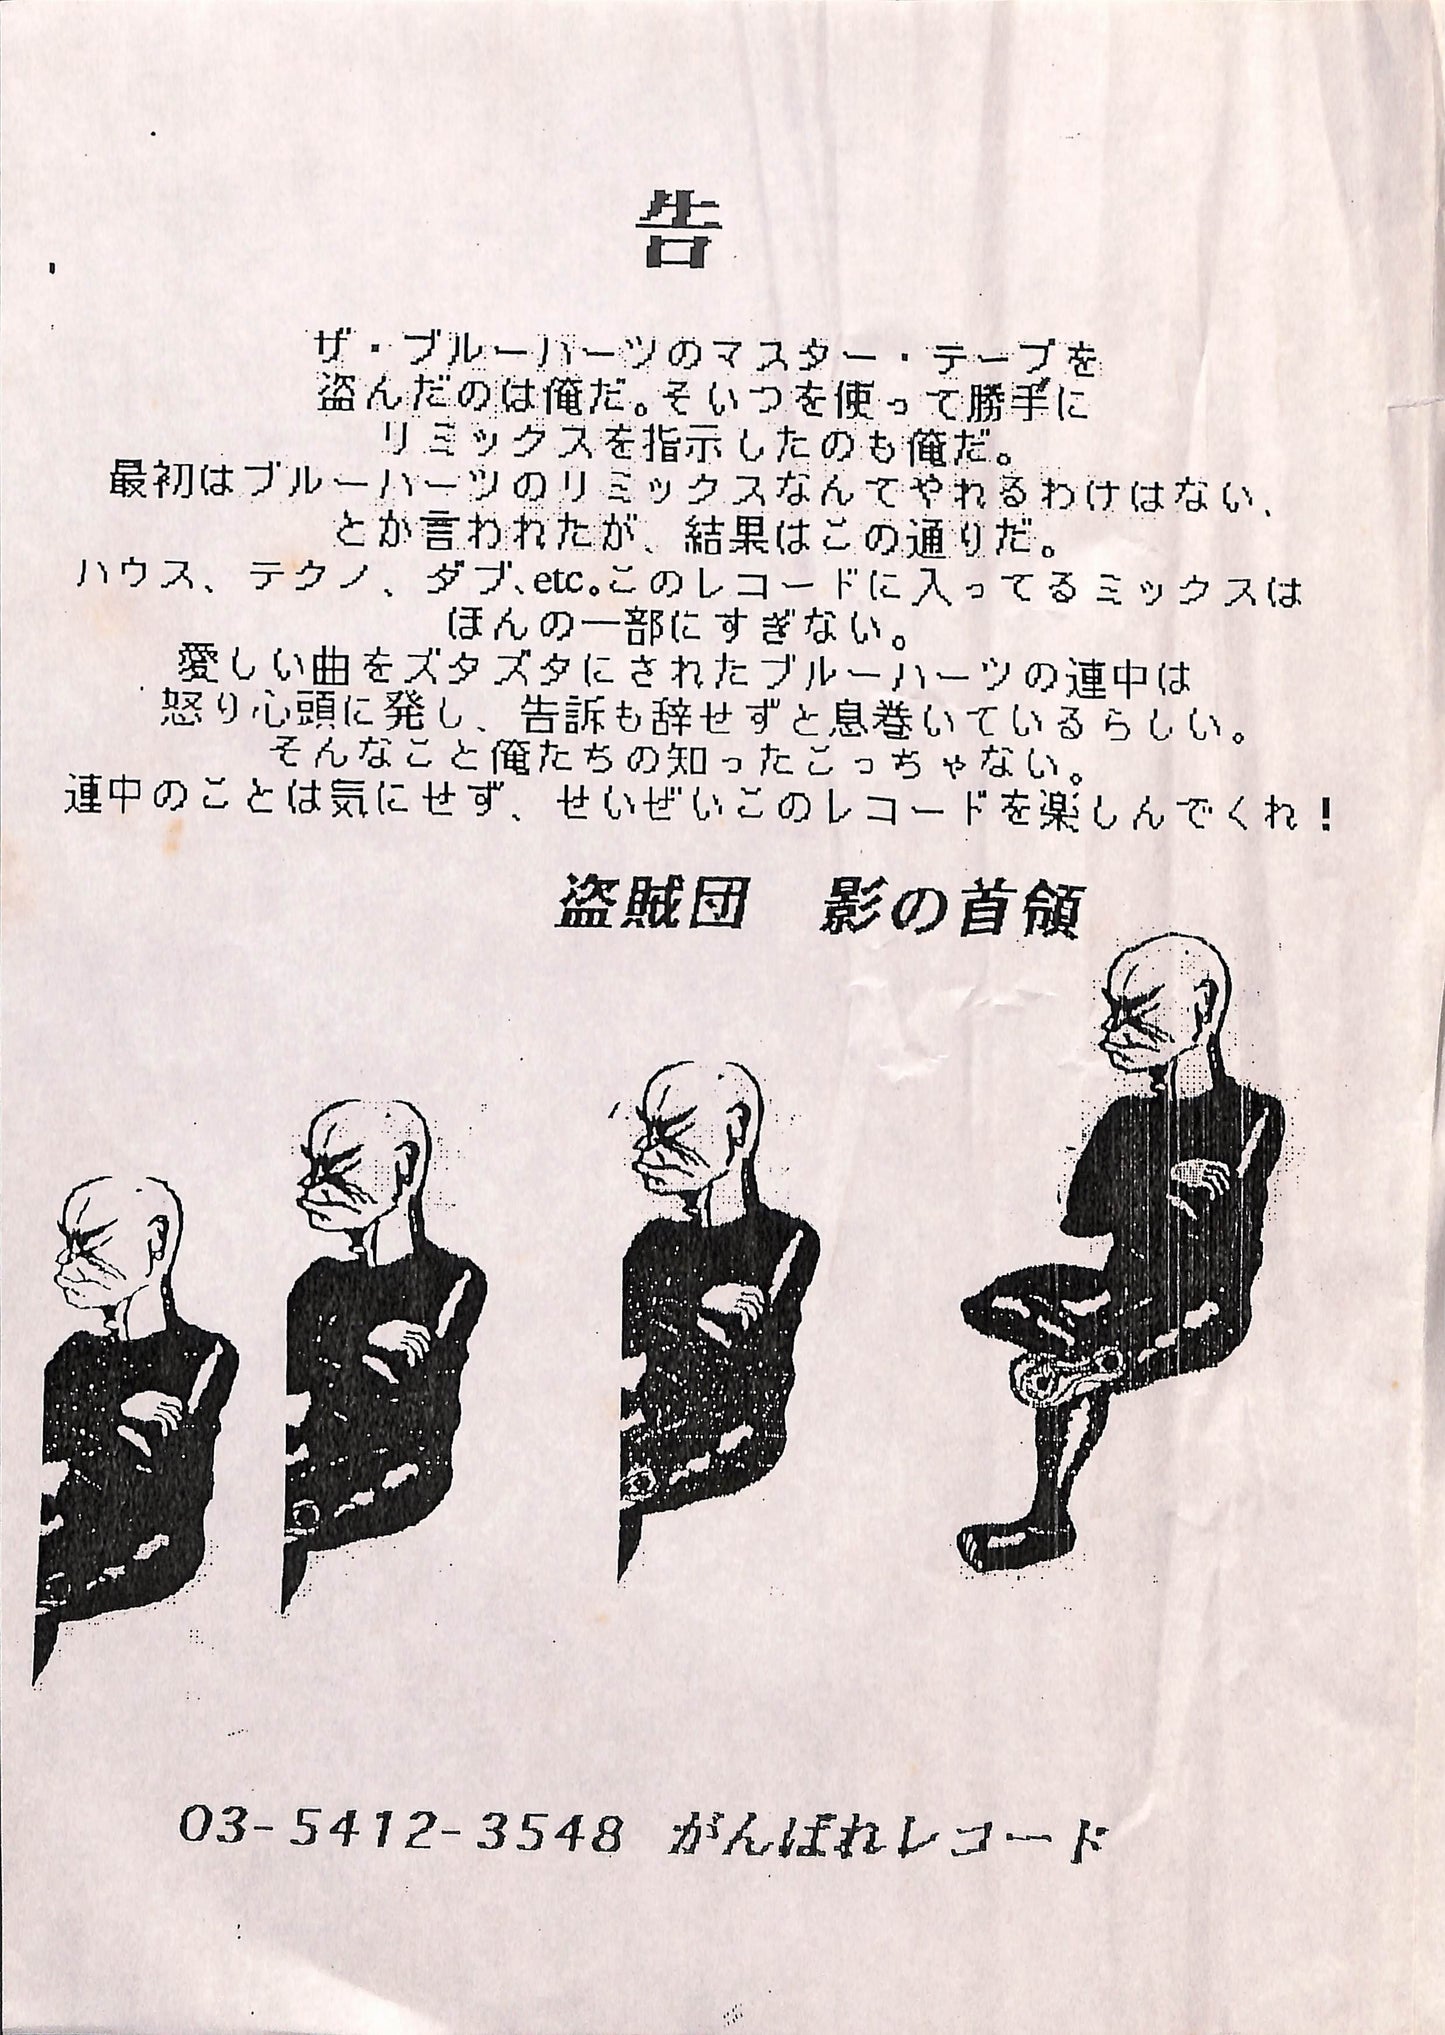 告
ザ・ブルーハーツのマスター・テープを
盗んだのは俺だ。そいつを使って勝手に
リミックスを指示したのも俺だ。
最初はブルーハーツのリミックスなんてやれるわけはない、
とか言われたが、結果はこの通りだ。
ハウス、テクノ、ダブ、etc。このレコードに入ってるミックスは
ほんの一部にすぎない。
愛しい曲をズタズタにされたブルーハーツの連中は
怒り心頭に発し、告訴も辞せずと息巻いているらしい。
そんなこと俺たちの知ったこっちゃない。
連中のことは気にせず、せいぜいこのレコードを楽しんでくれ！
盗賊団 影の首領
03-5412-3548 がんばれレコード